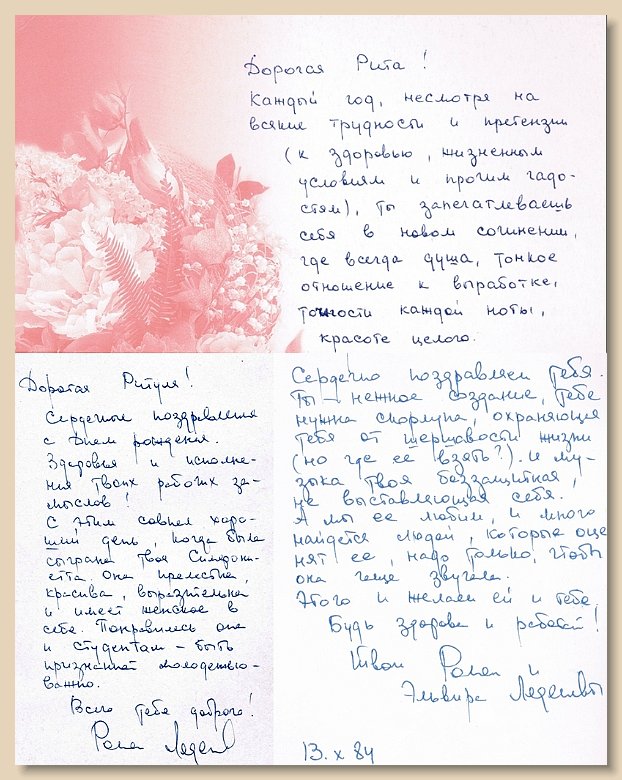 Дорогая Рита!
Каждый год, несмотря на
всякие трудности и претензии
(к здоровью, жизненным
условиям и прочим гадо-
стям), ты запечатлеваешь
себя в новом сочинении,
где всегда душа, тонкое
отношение к выработке,
точности каждой ноты,
красоте целого.
Дорогая Ритуля!
Сердечные поздравления
с Днем рождения.
Здоровья и исполне-
ния твоих рабочих за-
мыслов!
С этим совпал хоро-
ший день, когда была
сыграна твоя Симфони-
етта. Она прелестна,
красива, выразительна
и имеет женское в
себе. Понравилась она
и студентам – быть
признанной молодежью-
важно.
Всего тебе доброго!
Роман Леденёв
Сердечно поздравляем Тебя.
Ты – нежное создание, тебе
нужна скорлупа, охраняющая
тебя от шершавости жизни
(но где её взять?). И му-
зыка твоя беззащитная,
не выставляющая себя.
А мы ее любим, и много
найдется людей, которые оце
нят ее, надо только, чтобы
она чаще звучала.
Этого и желаем ей и тебе,
Будь здорова и работай!
Твои Роман и
Эльвира Леденевы
13.X 84